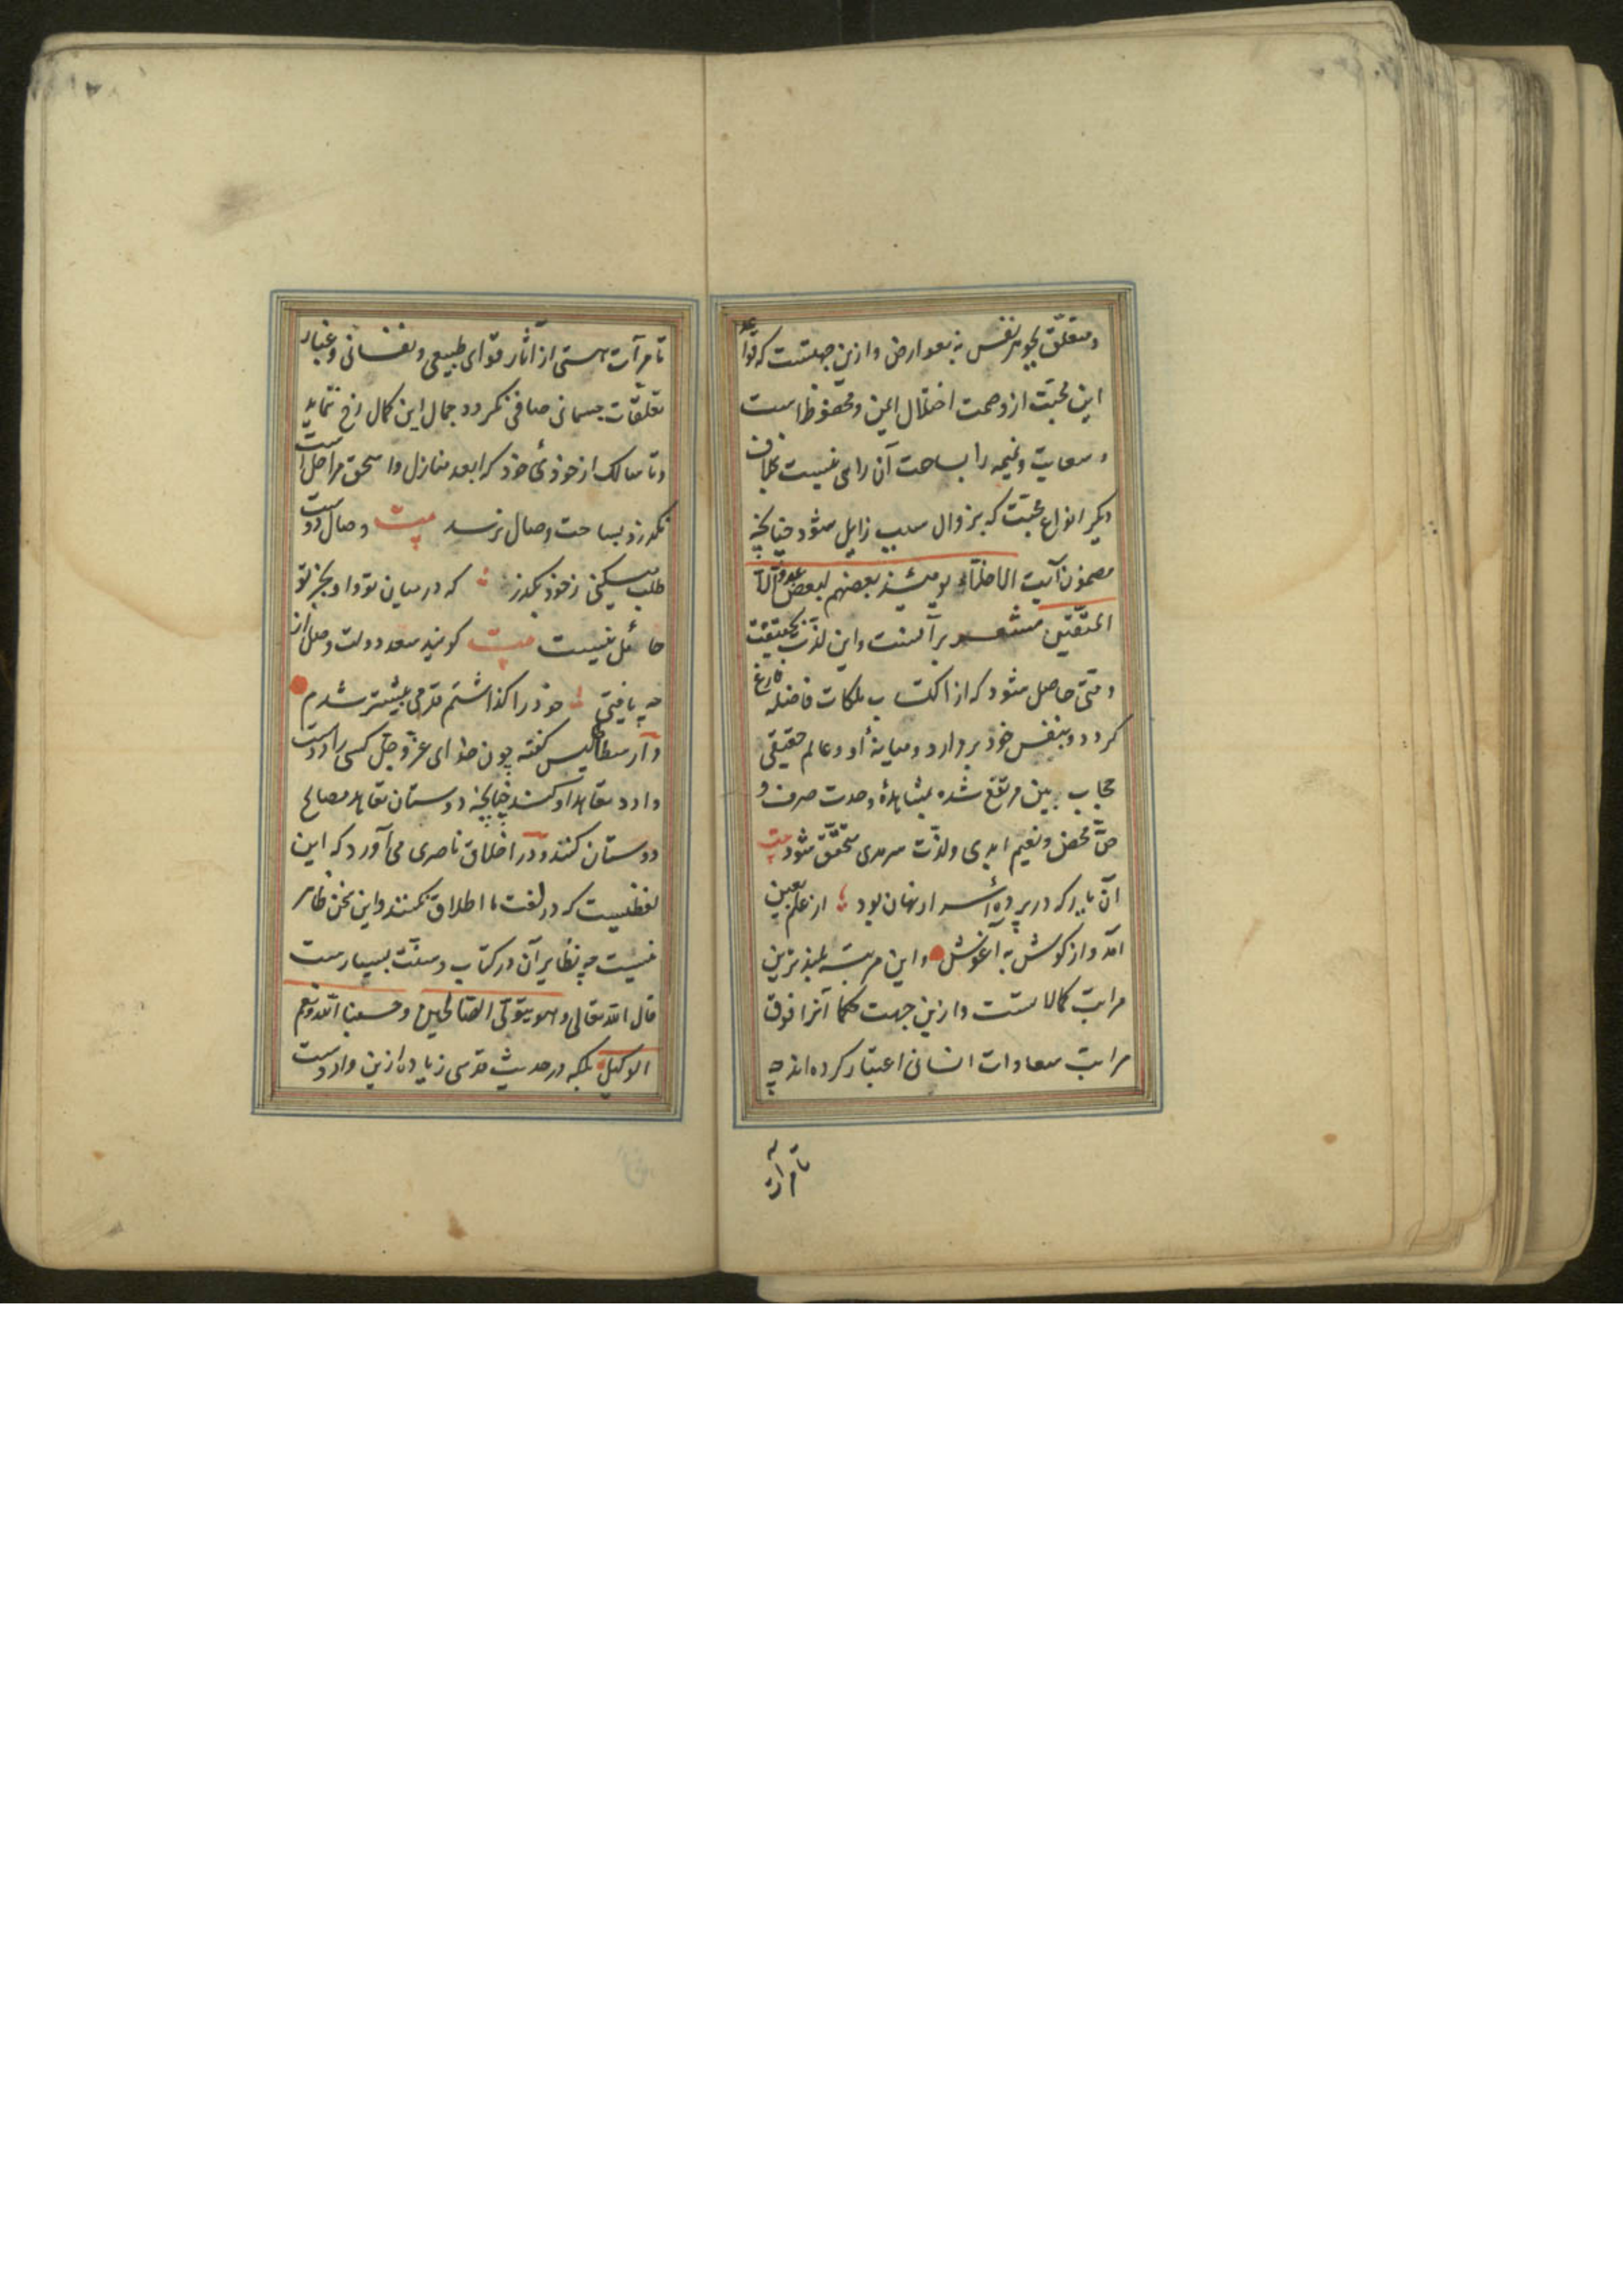 ومتعلّق بجوهر نفس نه بعوارض وازین جهتست که قواعد
این محبت از وصمت اختلال ایمن و محفوظ است
و سعایت و نمیمه را بساحت آن راهی نیست بخلاف
دیکر انواع محبّت که بزوال سبب زایل شود چنانچه
مضمون آیت الاخلّاء یومئذ بعضهم لبعض عدوّ الّا
المتقین مشعر بر آنست و این لذّت بحقیقت
وقتی حاصل شود که از اکتساب ملکات فاضله فارغ
کردد و بنفس خود پردازد و میانهٔ او و عالم حقیقی
حجاب بین مرتفع شده بمشاهدهٔ وحدت صرف و
حقّ محض و نعیم ابدی ولذّت سرمدی متحقّق شود بیت
آن یار که در پردهٔ اسرار نهان بود از علم بعین
آمد و از کوش به آغوش و این مرتبه بلند ترین
مراتب کمالاتست و ازین جهت حکما آنرا فوق
مراتب سعادات انسانی اعتبار کرده اند چه
تا مرآت
تا مرآت هستی از آثار قوای طبیعی و نفسانی و غبار
تعلقات جسمانی صافی نکردد جمال این کمال رخ ننماید
و تا سالک از خودئ خود که ابعد منازل و اسحق مراحل است
نکذرد بساحت وصال نرسد بیت وصال دوست
طلب میکنی ز خود بکذر که در میان تو و او بجز تو
حائل نیست بیت کویند سعد دولت وصل از
چه یافتی خود را کذاشتم قدمی بیشتر شدم
و ارسطاطالیس کفته چون خدای عزّوجلّ کسی را دوست
دارد تعاهد او کند چنانچه دوستان تعاهد مصالح
دوستان کنند و در اخلاق ناصری می آورد که این
لفظیست که در لغت ما اطلاق نکنند و این سخن ظاهر
نیست چه نظایر آن در کتاب و سنّت بسیارست
قال الله تعالی و هو یتولّی الصّالحین و حسبنا الله و نعم
الوکیل بلکه در حدیث قدسی زیاده ازین واردست